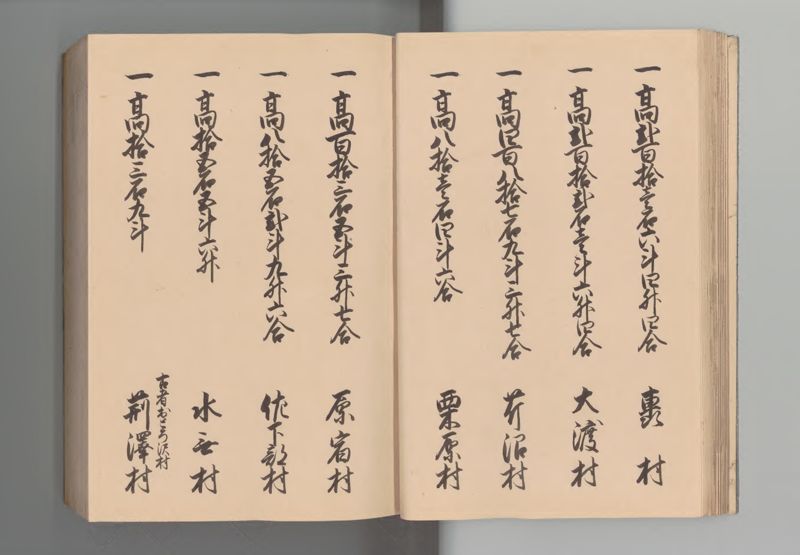 一 高弐百拾壱石六斗四升四合 轟村
一 高弐百拾弐石壱斗六升四合 大渡村
一 高四百八拾七石九斗三升七合 芹沼村
一 高八拾壱石四斗六合 栗原村
一 高百拾三石五斗三升七合 原宿村
一 高八拾五石弐斗九升六合 佐下部村
一 高拾五石五斗六升 水無村
一 高拾三石九斗 荊澤村
古者おとろ沢村